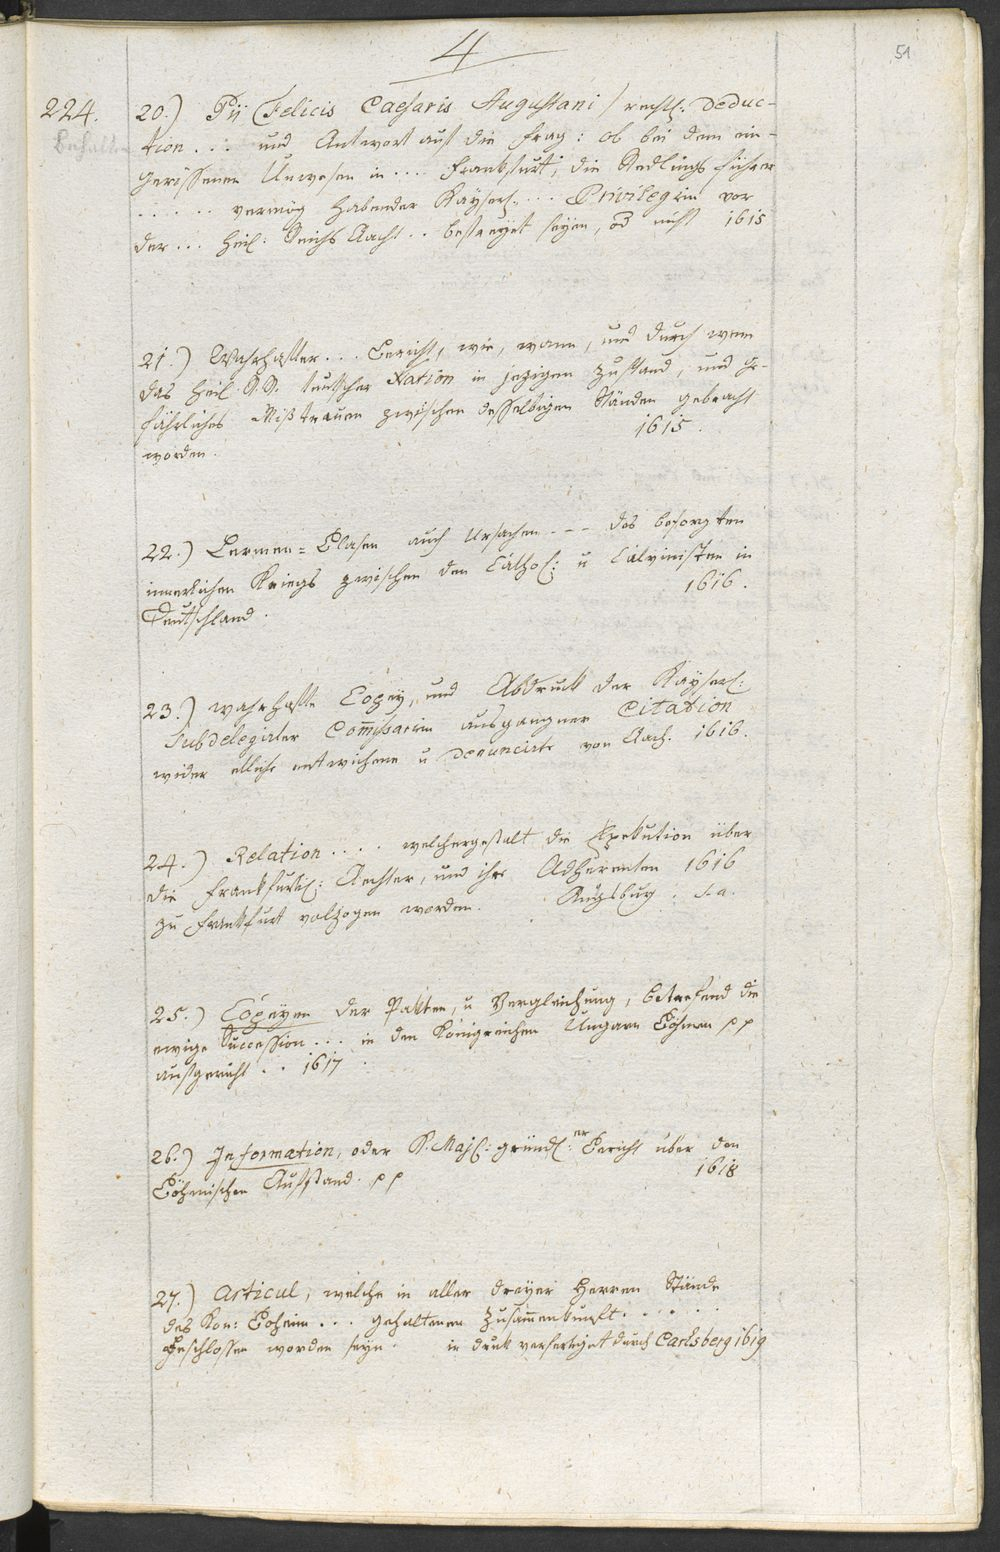 4
51
224.
Behalten
20.) Pii Felicis Caesaris Augustani / rechtl: Deduc-
tion ... und Antwort auf die Frag: ob bei dem ein-
gerissenen Unwesen in .... Frankfurt, die Rädlings führer
..... vermög habender Kayserl. ... Privilegien vor
der ... Heil: Reichs Aacht .. befreyet seyen, od nicht 1615
21.) Wahrhafter ... Bericht, wie, wann, und durch wem
das heil R. R. teutscher Nation in jezigen Zustand, und ge-
fährliches Mißtrauen zwischen desselbigen Ständen gebracht
worden. 1615.
22.) Lermen=Blasen auch Ursachen -- des besorgten
innerlichen Kriegs zwischen den Cathol: u Calvinisten in
Deutschland. 1616.
23.) wahrhafte Copey, und Abdruck der Kayserl:
Subdelegirter Commissarien ausgangner Citation
wider etliche entwichene u denuncirte von Aach. 1616.
24.) Relation .... welchergestalt die Exekution über
die Frankfurtl: Aechter, und ihre Adherenten 1616
zu Frankfurt volzogen worden. Augsburg. s. a.
25.) Copeyen der Pakten, u Vergleichung, betrefend die
ewige Succession ... in den Königreichen Ungarn Böhmen pp
aufgericht .. 1617
26.) Information, oder K. Majl: gründl:er Bericht über den
Böhmischen Aufstand. pp 1618
27.) Articul, welche in aller dreyer Herren Stände
des Kön: Boheim ... gehaltenen Zusammenkunft. .....
Geschlossen worden seyn. in druk verfertiget durch Carlsberg 1619